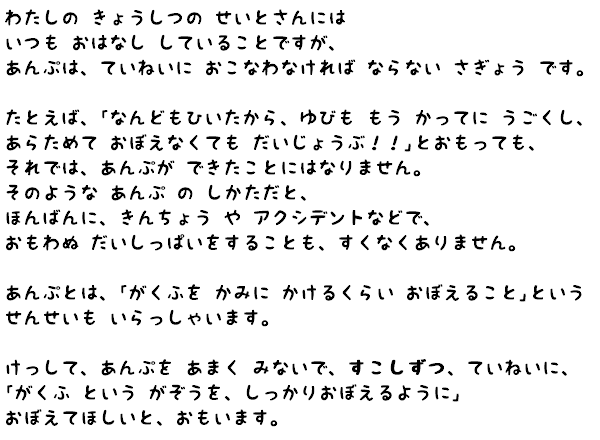 わたしの きょうしつの せいとさんには
いつも おはなし していることですが、
あんぷは、ていねいに おこなわなければ ならない さぎょう です。
たとえば、「なんどもひいたから、ゆびも もう かってに うごくし、
あらためて おぼえなくても だいじょうぶ！！」とおもっても、
それでは、あんぷが できたことにはなりません。
そのような あんぷ の しかただと、
ほんばんに、きんちょう や アクシデントなどで、
おもわぬ だいしっぱいをすることも、すくなくありません。
あんぷとは、「がくふを かみに かけるくらい おぼえること」という
せんせいも いらっしゃいます。
けっして、あんぷを あまく みないで、すこしずつ、ていねいに、
「がくふ という がぞうを、しっかりおぼえるように」
おぼえてほしいと、おもいます。